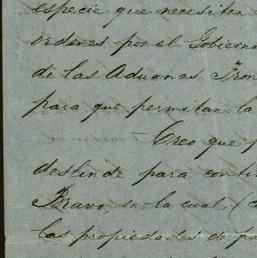 especie que necesiten
ordenes por el Gobierno
de las Aduanas Fron
para que permitan la
Creo que p
deslinde para conti
Bravo, en la cual (c
las propiedades de pa